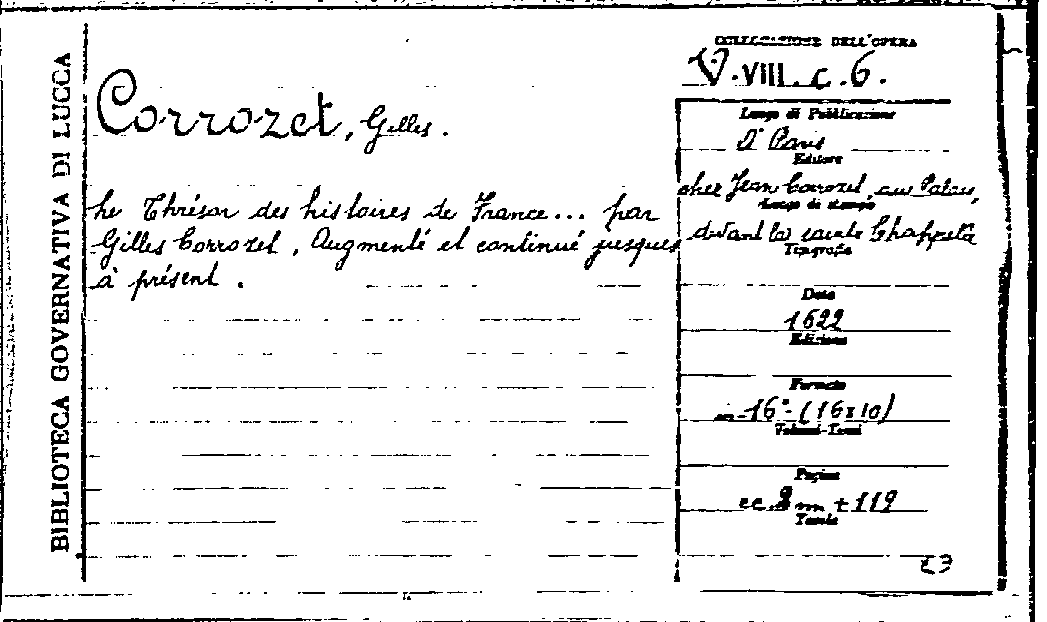 BIBLIOTECA GOVERNATIVA DI LUCCA
Corrozet, Gilles.
Le Thrésor des histoires de France... par
Gilles Corrozet, Augmenté et continué jusques
à présent.
COLLOCAZIONE DELL'OPERA
V.VIII.c.6.
Luogo di Pubblicazione
A Paris
Editore
chez Jean Corrozet, au Palais,
Luogo di stampa
devant la sainte Chappelle
Tipografia
Data
1622
Edizione
Formato
in-16°-(16x10)
Volumi-Tomi
Pagine
cc. 8 m + 119
Tavole